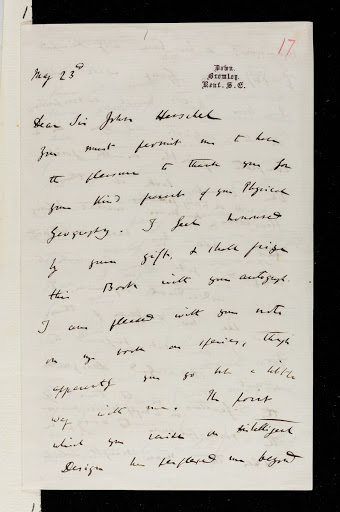 17
Down.
Bromley.
Kent. S.E.
May 23d
Dear Sir John Herschel
You must permit me to have
the pleasure to thank you for
your kind present of your Physical
Geography. I feel honoured
by your gift, & shall prize
this Book with your autograph.
I am pleased with your note
on my book on species, though
apparently you go but a little
way with me. The point
which you raise on intelligent
Design has perplexed me beyond